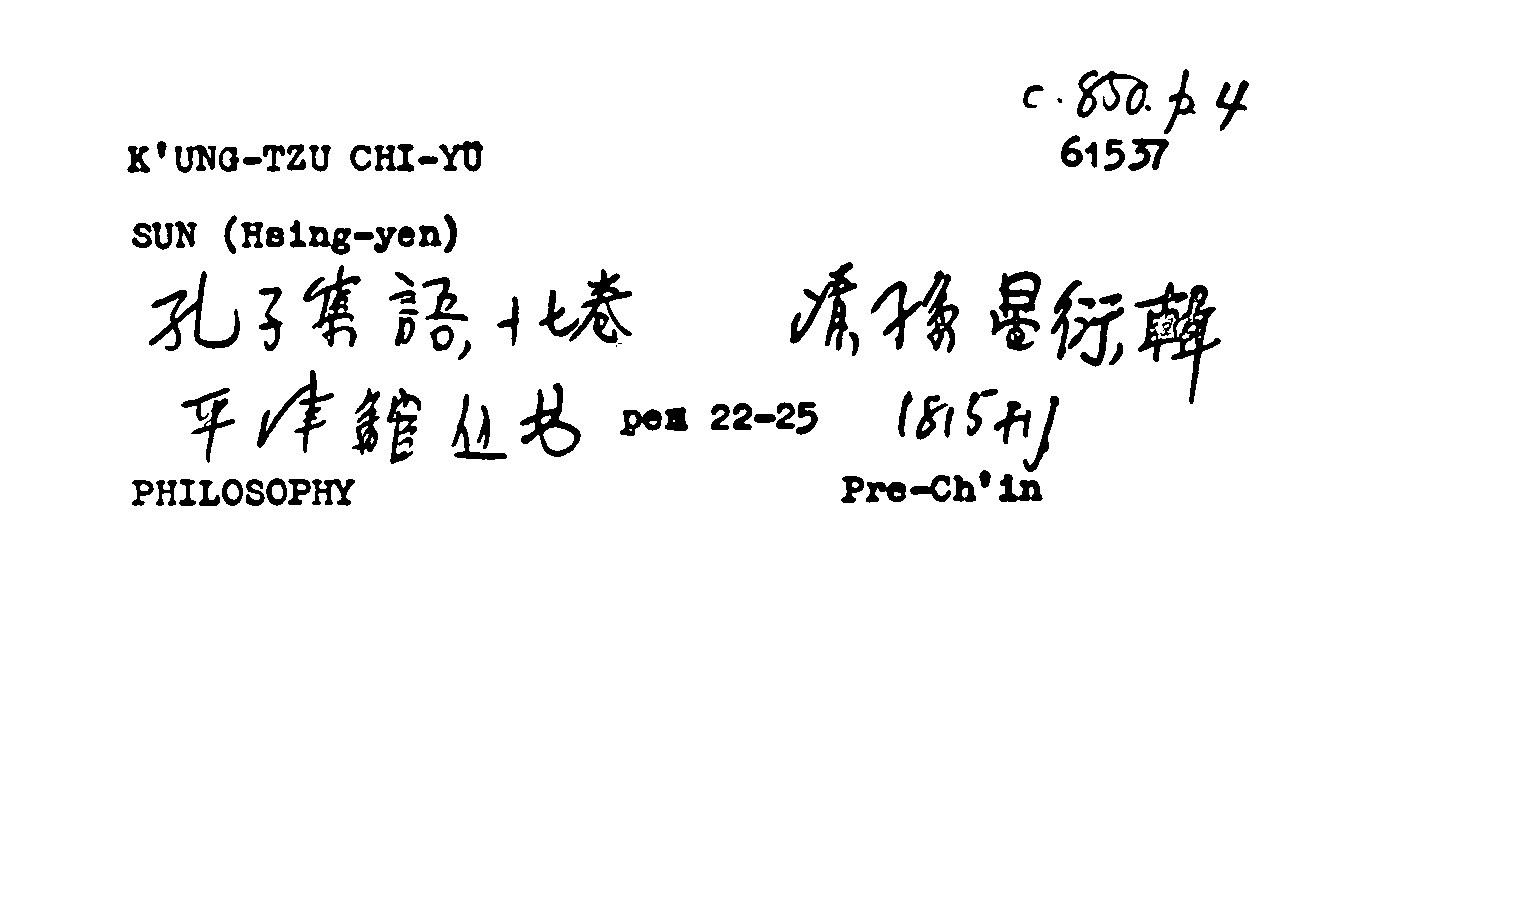 c. 850. p 4
61537
K'UNG-TZU CHI-YÜ
SUN (Hsing-yen)
孔子集語,十七卷 清孫星衍,輯
平津館丛书 pen 22-25 1815刊
PHILOSOPHY Pre-Ch'in